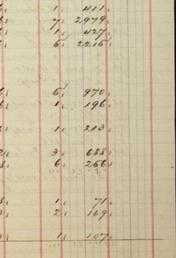 1, 411,
7, 2979,
1, 427,
6, 2215,
6, 970,
1, 196,
1, 213,
3, 688,
6, 266,
1, 71,
2, 169,
1, 107,